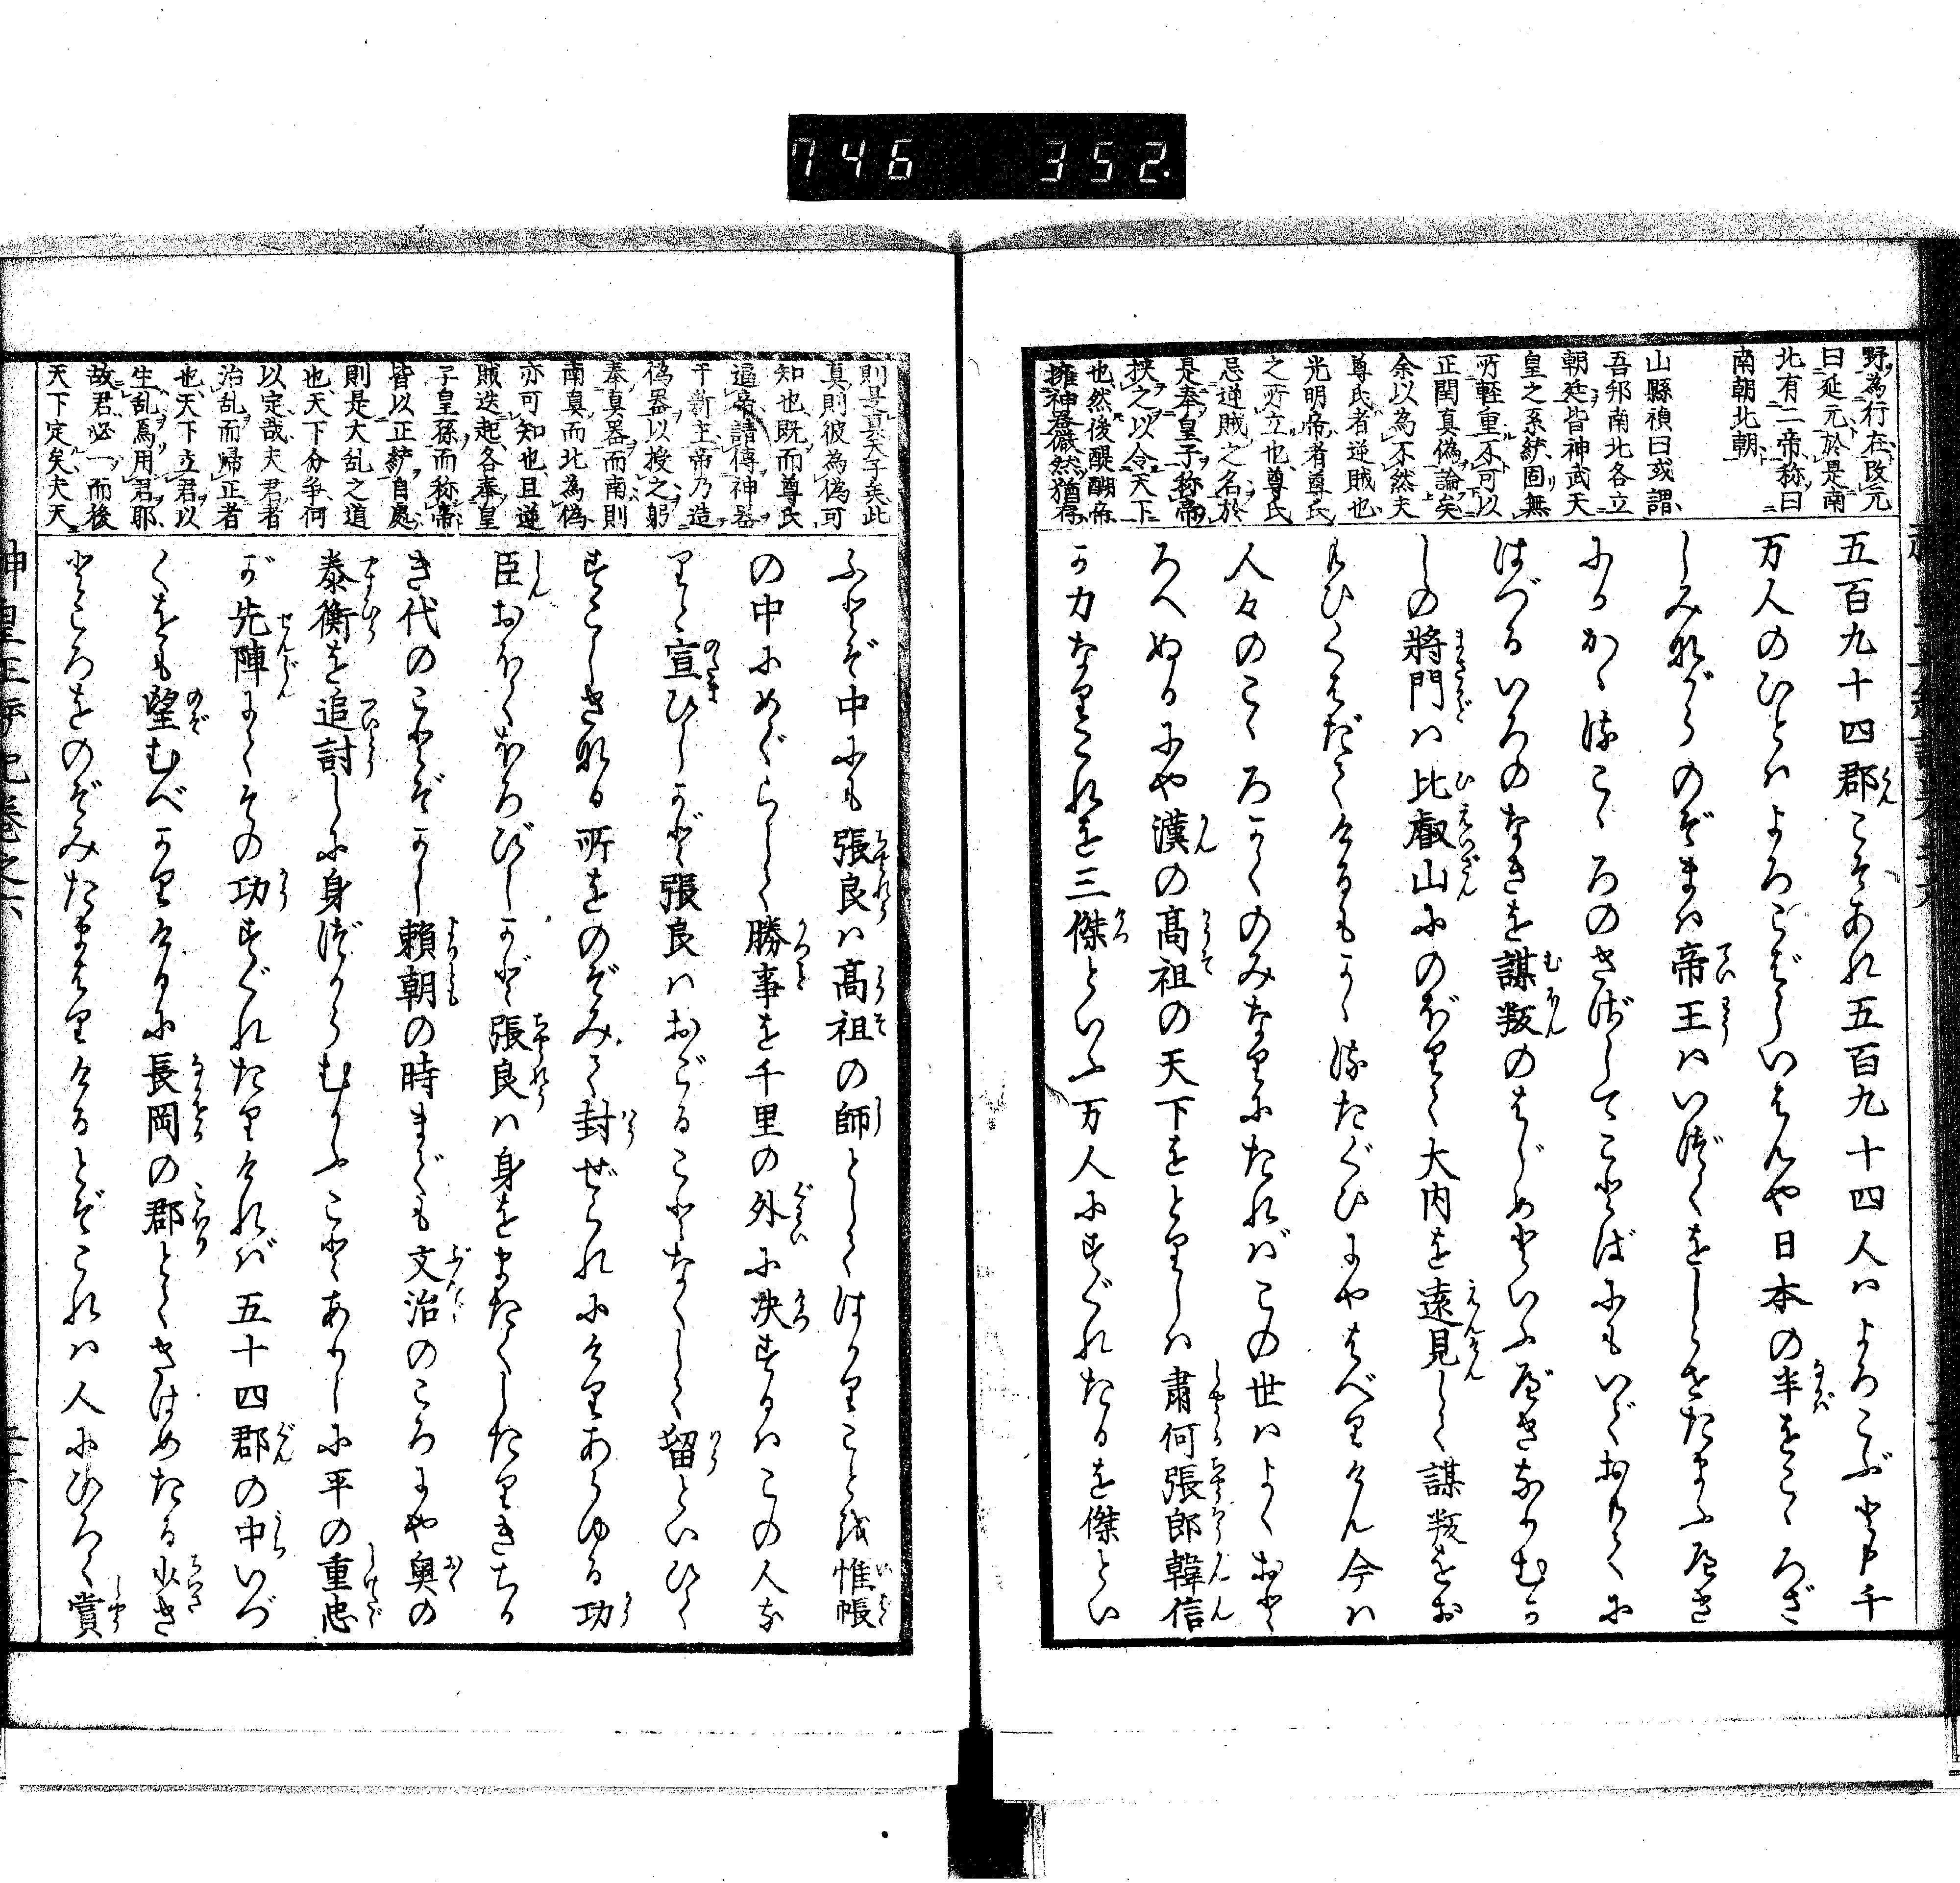 746 352.
野為行在改元
曰延元於是南
北有二帝称曰
南朝北朝
山縣禎曰或謂
吾邦南北各立
朝廷皆神武天
皇之系統固無
所軽重不可以
正閏真偽論矣
余以為不然夫
尊氏者逆賊也
光明帝者尊氏
之所立也尊氏
忌逆賊之名於
是奉皇子称帝
挟之以令天下
也然後醍醐帝
擁神器儼然猶存
五百九十四郡こそあれ五百九十四人はよろこぶとも千
万人のひとはよろこばじいはんや日本の半をこゝろざ
しみながらのぞまは帝王はいづくをしらせたまふべき
にかかゝるこゝろのきざしてことばにもいでおもてに
はづるいろのなきを謀叛のはじめといふべきなりむか
しの将門は比叡山にのぼりて大内を遠見して謀叛をお
もひくはだてけるもかゝるたぐひにやはべりけん今は
人々のこゝろかくのみなりにたればこの世はよくおと
ろへぬるにや漢の高祖の天下をとりしは肅何張郎韓信
か力なりこれを三傑といふ万人にすぐれたるを傑とい
則是真天子矣此
真則彼為偽可
知也既而尊氏
逼帝請傳神器
于新主帝乃造
偽器以授之躬
奉真器而南則
南真而北為偽
亦可知也且逆
賊迭起各奉皇
子皇孫而称帝
皆以正統自處
則是大乱之道
也天下分争何
以定哉夫君者
治乱而帰正者
也天下立君以
生乱焉用君耶
故君必一而後
天下定矣夫天
ふとぞ中にも張良は高祖の師としてはかりことを惟帳
の中にめぐらして勝事を千里の外に决するはこの人な
りと宣ひしかど張良はおごることなくして留といひて
すこしきなる所をのぞみて封ぜられにけりあらゆる功
臣おほくほろびしかど張良は身をまたくしたりきちか
き代のことぞかし頼朝の時までも文治のころにや奥の
泰衡を追討しに身づからむかふことありしに平の重忠
が先陣にてその功すぐれたりければ五十四郡の中いづ
くをも望むべかりけるに長岡の郡とてきはめたる少き
ところをのぞみたまはりけるとぞこれは人にひろく賞
神皇正統記巻之六